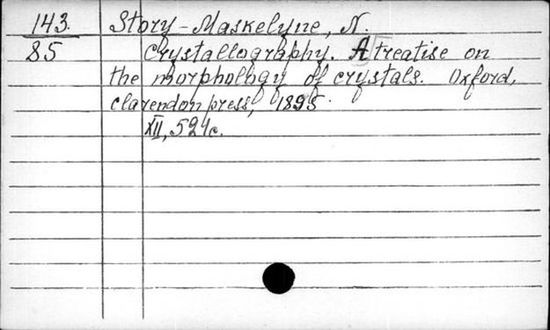 143. Story-Maskelyne, N.
85 Crystallography. A treatise on
the morphology of crystals. Oxford,
Clarendon press, 1895.
XII, 521c.